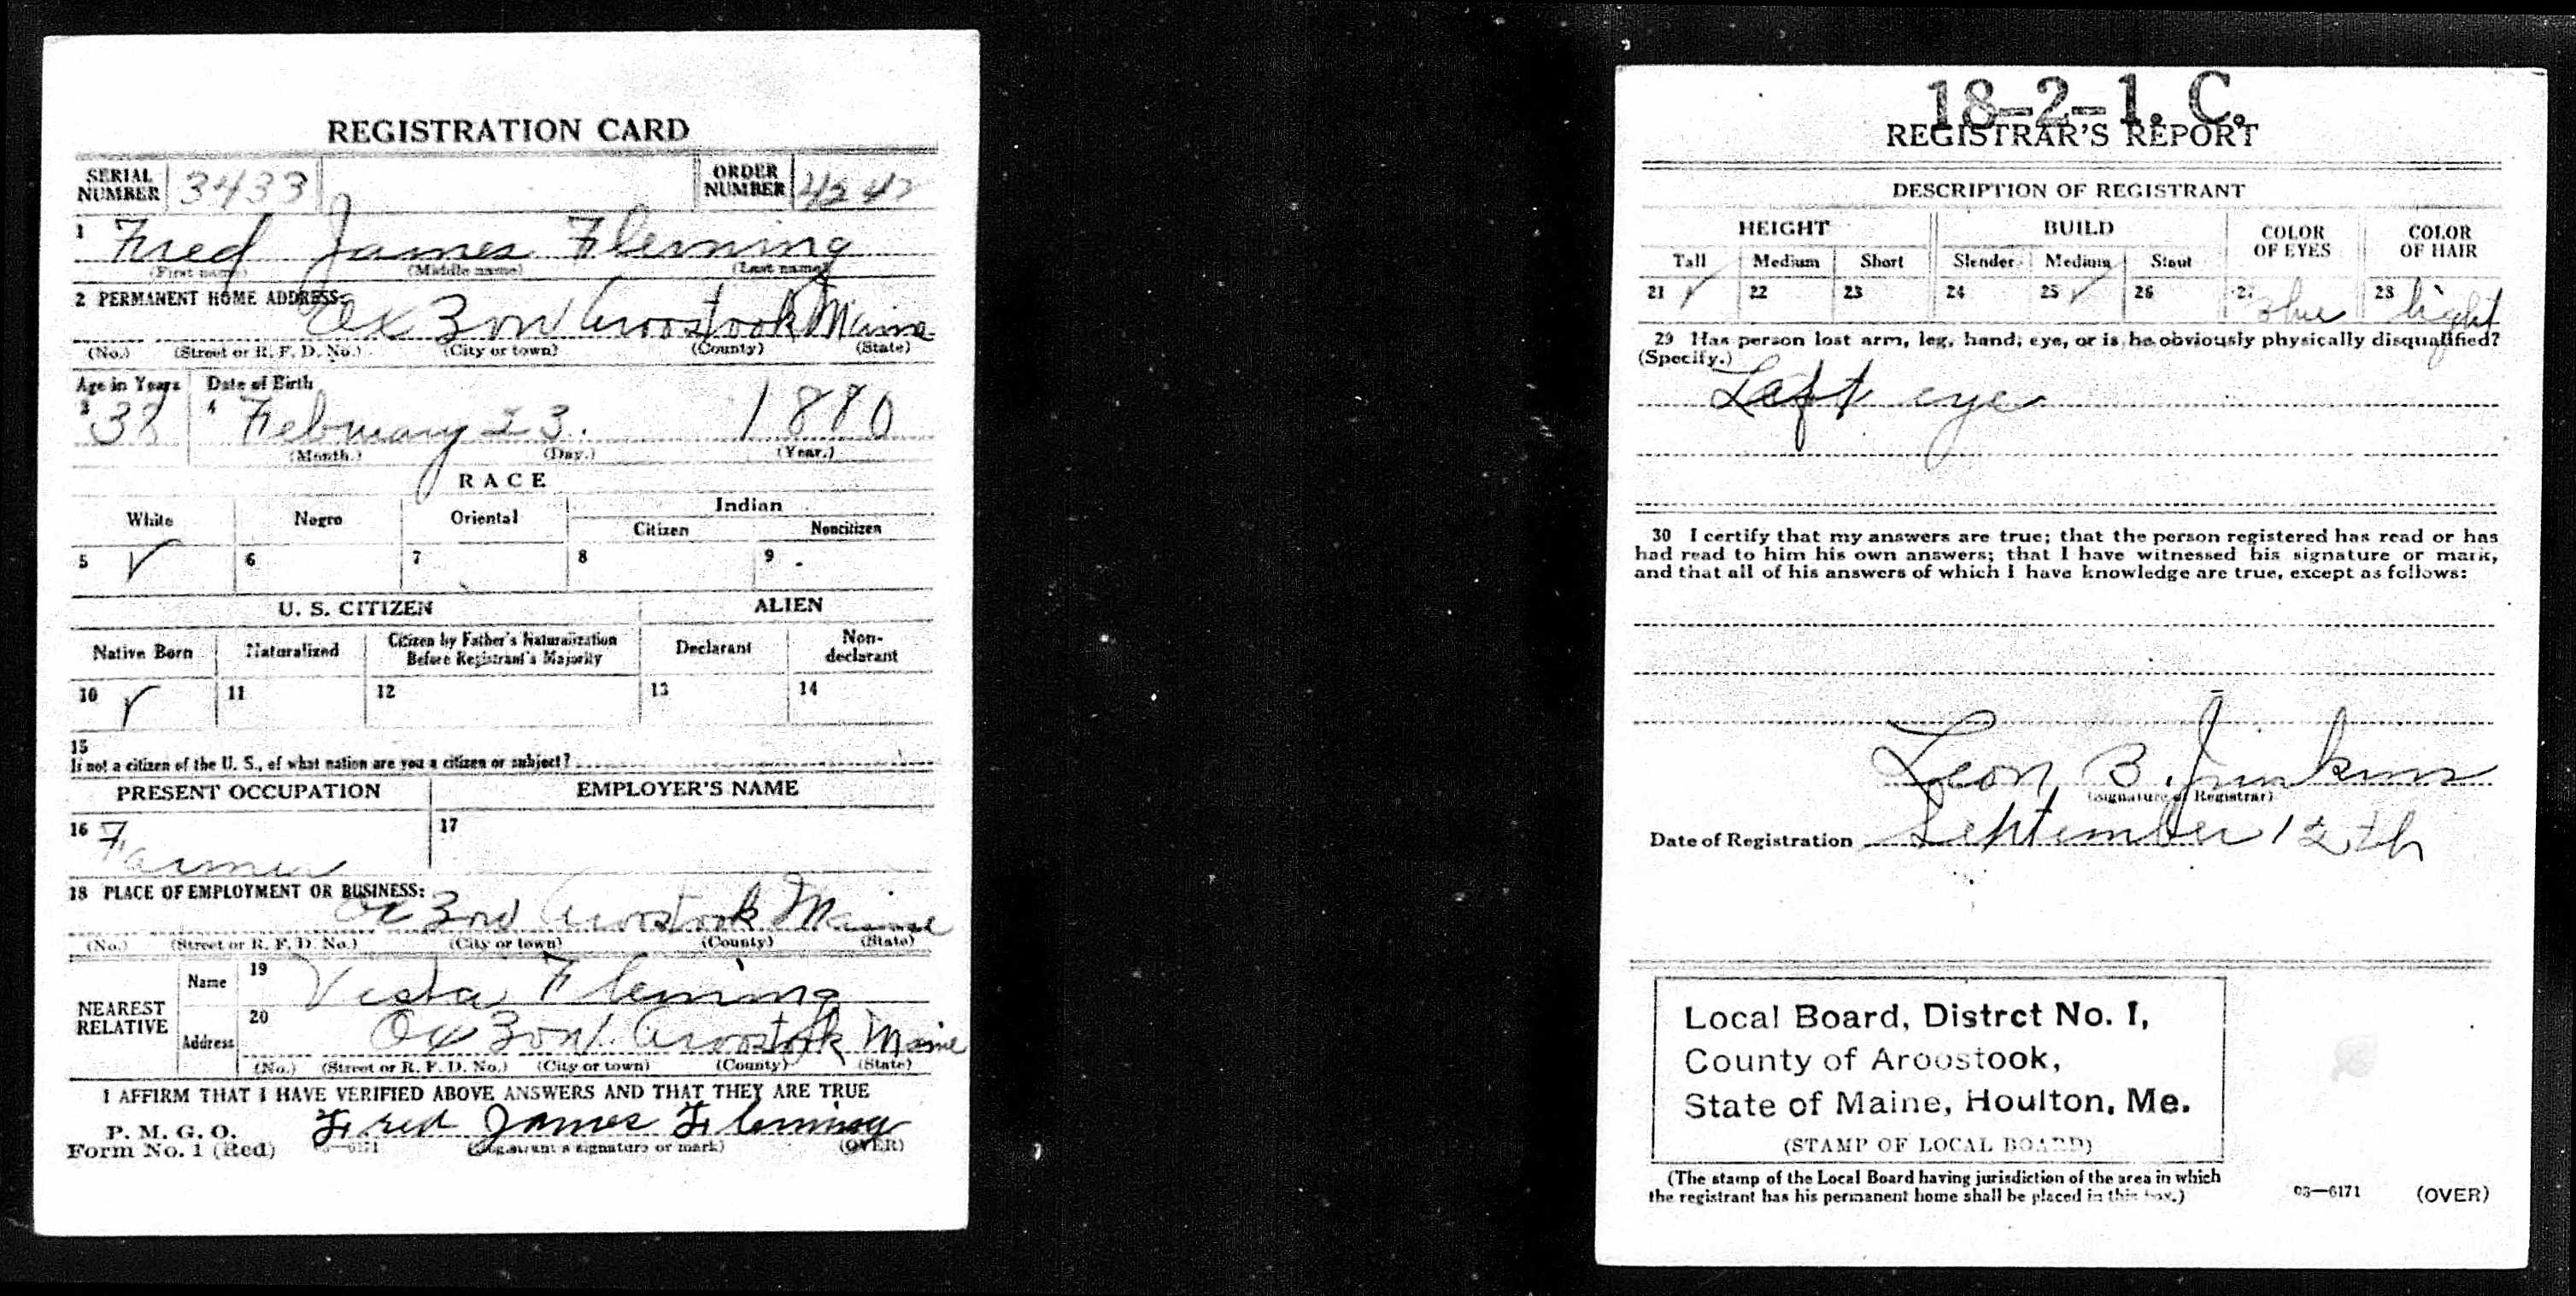 REGISTRATION CARD
SERIAL NUMBER 3433 ORDER NUMBER 4247
1 Fred James Fleming
(First name) (Middle name) (Last name)
2 PERMANENT HOME ADDRESS:
Ox Bow Aroostook Maine
(No.) (Street or R. F. D. No.) (City or town) (County) (State)
Age in Years Date of Birth
3 38 4 February 23. 1880
(Month.) (Day.) (Year.)
RACE
White Negro Oriental Indian
Citizen Noncitizen
5 ✓ 6 7 8 9
U. S. CITIZEN ALIEN
Native Born Naturalized Citizen by Father's Naturalization Before Registrant's Majority Declarant Non-declarant
10 ✓ 11 12 13 14
15
If not a citizen of the U. S., of what nation are you a citizen or subject?
PRESENT OCCUPATION EMPLOYER'S NAME
16 Farmer 17
18 PLACE OF EMPLOYMENT OR BUSINESS:
Ox Bow Aroostook Maine
(No.) (Street or R. F. D. No.) (City or town) (County) (State)
NEAREST RELATIVE
Name 19 Vesta Fleming
Address 20 Ox Bow Aroostook Maine
(No.) (Street or R. F. D. No.) (City or town) (County) (State)
I AFFIRM THAT I HAVE VERIFIED ABOVE ANSWERS AND THAT THEY ARE TRUE
P. M. G. O.
Form No. 1 (Red) Fred James Fleming
(Registrant's signature or mark) (OVER)
18-2-1. C.
REGISTRAR'S REPORT
DESCRIPTION OF REGISTRANT
HEIGHT BUILD COLOR OF EYES COLOR OF HAIR
Tall Medium Short Slender Medium Stout
21 ✓ 22 23 24 25 ✓ 26 27 Blue 28 light
29 Has person lost arm, leg, hand, eye, or is he obviously physically disqualified?
(Specify.)
Left eye
30 I certify that my answers are true; that the person registered has read or has
had read to him his own answers; that I have witnessed his signature or mark,
and that all of his answers of which I have knowledge are true, except as follows:
Leon B. Junkins
(Signature of Registrar)
Date of Registration September 12th
Local Board, Distrct No. I,
County of Aroostook,
State of Maine, Houlton, Me.
(STAMP OF LOCAL BOARD)
(The stamp of the Local Board having jurisdiction of the area in which
the registrant has his permanent home shall be placed in this box.)
03—6171 (OVER)